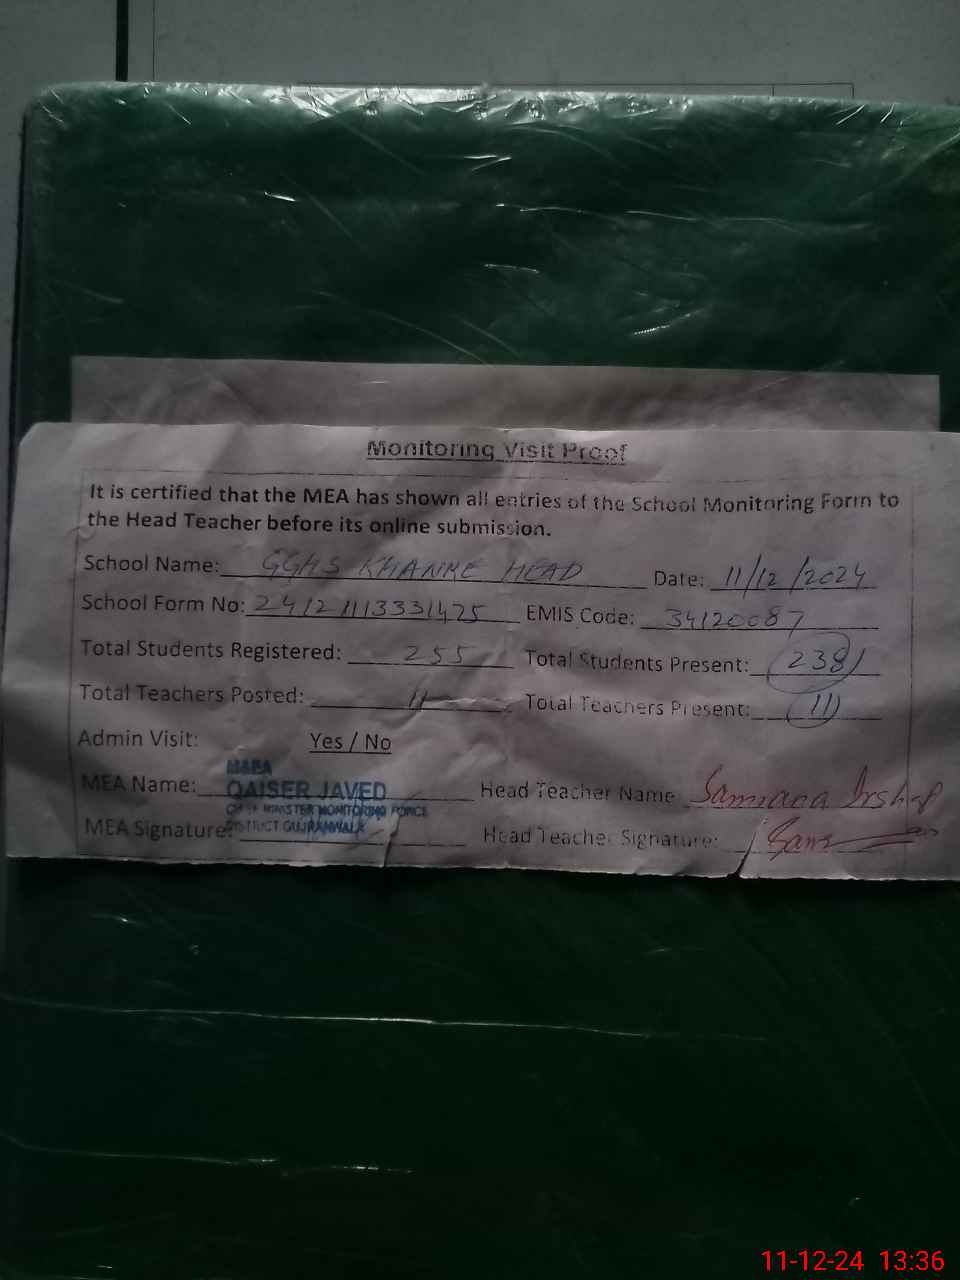 Monitoring Visit Proof
It is certified that the MEA has shown all entries of the School Monitoring Form to
the Head Teacher before its online submission.
School Name: GGHS KHANKE HEAD Date: 11/12/2024
School Form No: 24121113331425 EMIS Code: 34120087
Total Students Registered: 255 Total Students Present: 238
Total Teachers Posted: 11 Total Teachers Present: 11
Admin Visit: Yes / No
MEA Name: Head Teacher Name
M&EA
QAISER JAVED
CHIEF MINISTER MONITORING FORCE
DISTRICT GUJRANWALA
MEA Signature: Head Teacher Signature:
11-12-24 13:36